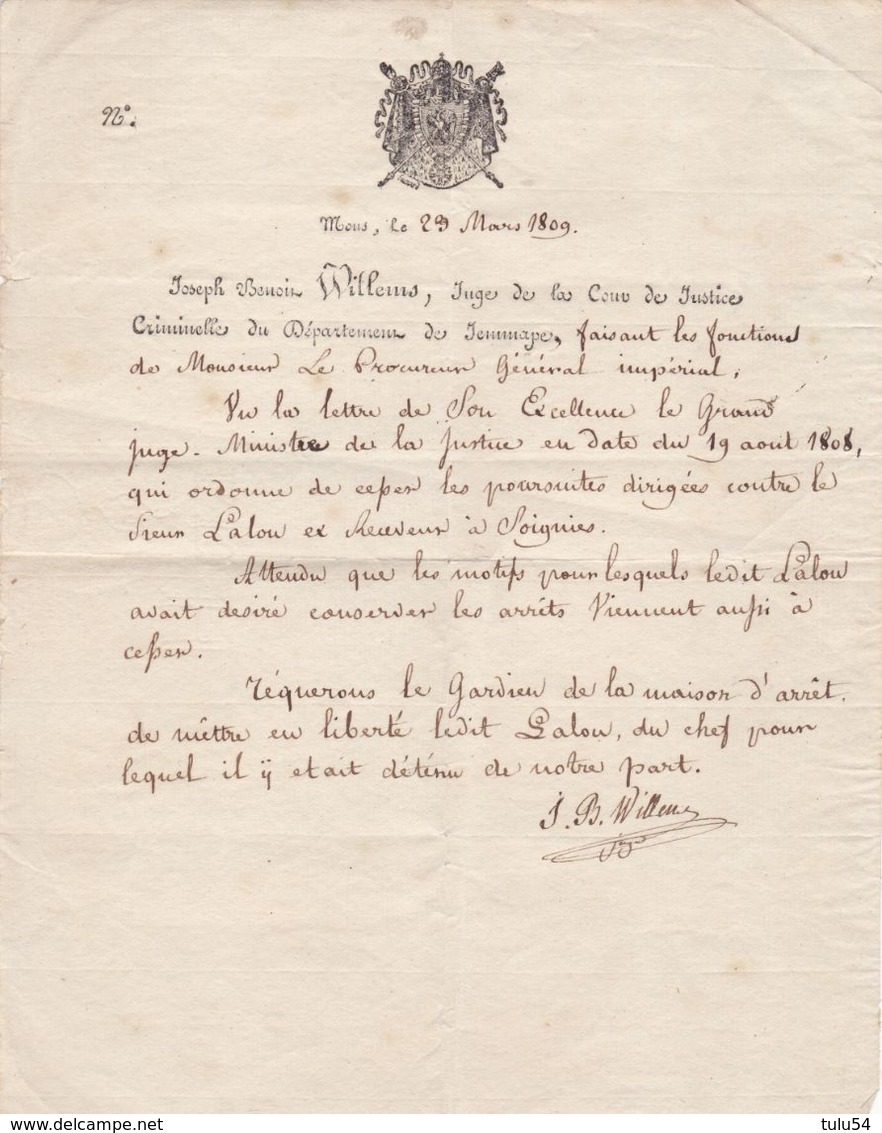 N°.
Mons, le 23 Mars 1809.
Joseph Benoit Willems, Juge de la Cour de Justice
Criminelle du Département de Jemmape, faisant les fonctions
de Monsieur Le Procureur Général impérial,
Vu la lettre de Son Excellence le Grand
juge-Ministre de la Justice en date du 19 aout 1808,
qui ordonne de cesser les poursuites dirigées contre le
Sieur Lalou ex Receveur à Soignies.
Attendu que les motifs pour lesquels ledit Lalou
avait desiré conserver les arrêts viennent aussi à
cesser.
réquerons le Gardien de la maison d'arrêt
de mêttre en liberté ledit Lalou, du chef pour
lequel il ÿ etait détenu de notre part.
J. B. Willems
delcampe.net
tulu54